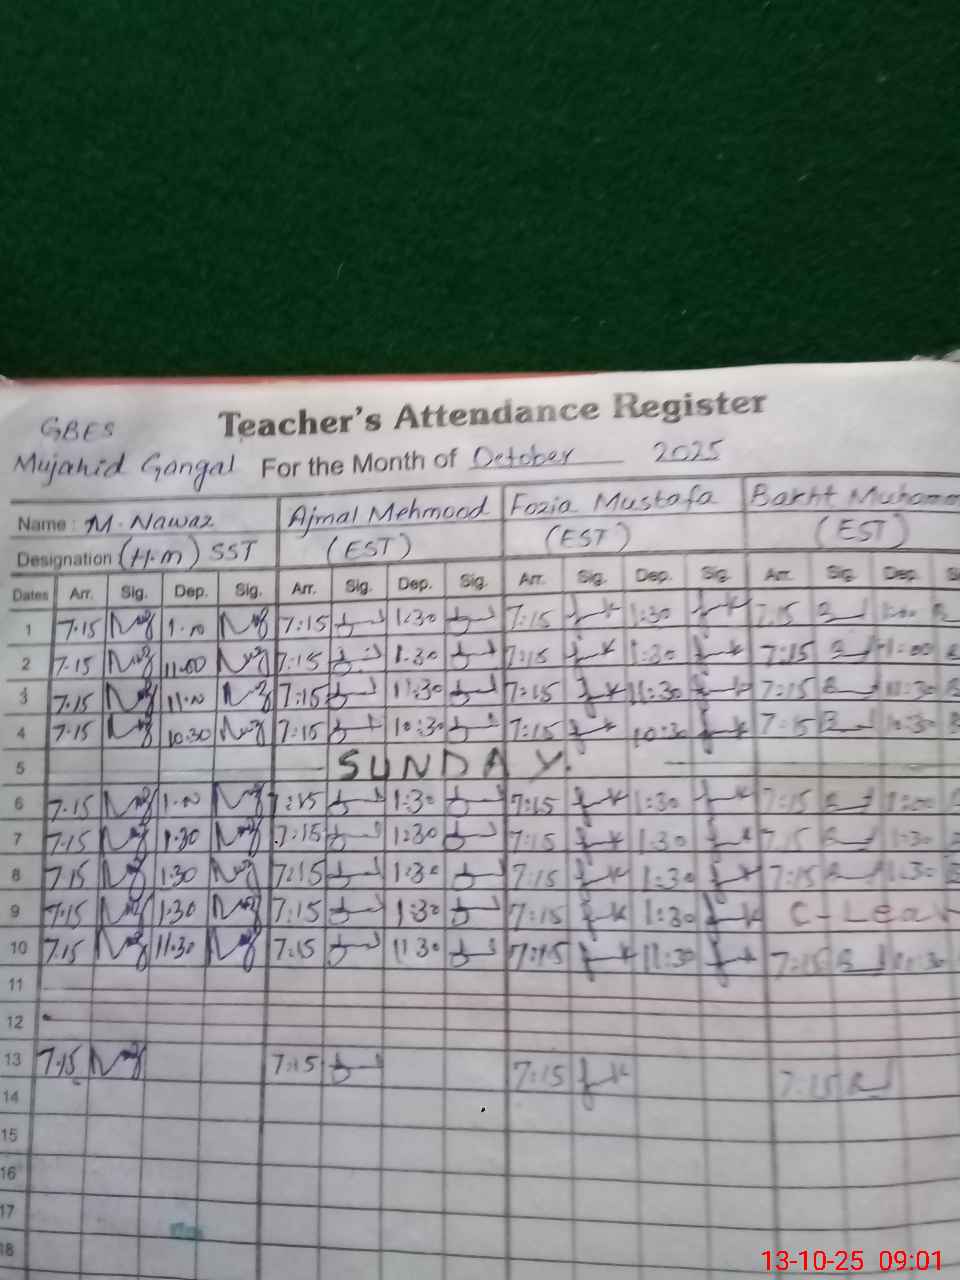 GBES
Teacher's Attendance Register
Mujahid Gangal For the Month of October 2025
Name : M. Nawaz Ajmal Mehmood Fozia Mustafa Bakht Muhamm
Designation (H.m) SST (EST) (EST) (EST)
Dates Arr. Sig. Dep. Sig. Arr. Sig. Dep. Sig. Arr. Sig. Dep. Sig. Arr. Sig. Dep. S
1 7.15 1.00 7:15 1:30 7:15 1:30 7.15 1:00
2 7.15 11.00 7:15 1.30 7:15 1:30 7:15 1:00
3 7.15 11.00 7:15 11:30 7:15 11:30 7:15 11:30
4 7.15 10.30 7:15 10:30 7:15 10:30 7:15 10:30
5 SUNDAY.
6 7.15 1.00 7:15 1:30 7:15 1:30 7:15 1:00
7 7.15 1.30 7:15 1:30 7:15 1:30 7.15 1:30
8 7.15 1.30 7:15 1:30 7:15 1:30 7:15 1:30
9 7.15 1.30 7:15 1:30 7:15 1:30 C-Leav
10 7.15 11.30 7:15 11 30 7:15 11:30 7:15 11:30
11
12
13 7.15 7:15 7:15 7:15
14
15
16
17
18
13-10-25 09:01